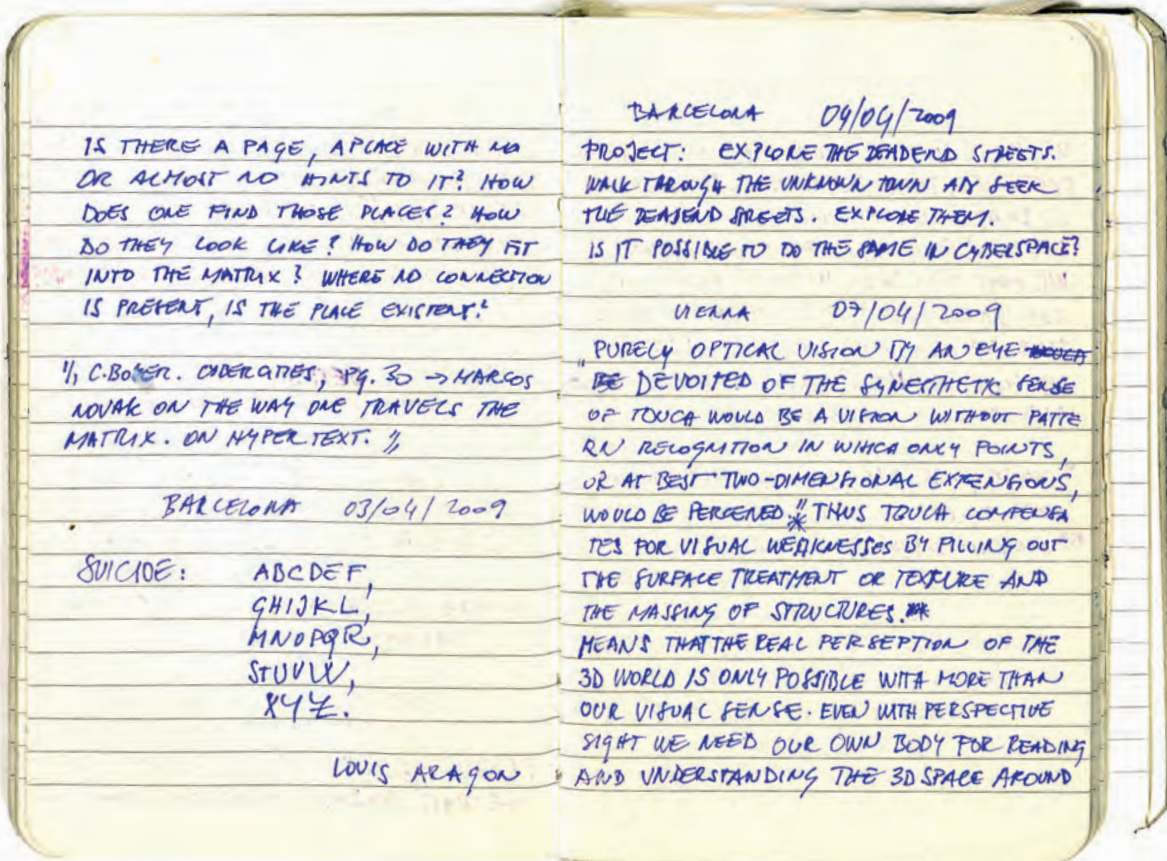 IS THERE A PAGE, A PLACE WITH NO
OR ALMOST NO HINTS TO IT? HOW
DOES ONE FIND THOSE PLACES? HOW
DO THEY LOOK LIKE? HOW DO THEY FIT
INTO THE MATRIX? WHERE NO CONNECTION
IS PRESENT, IS THE PLACE EXISTENT?
C.BOYER. CYBERCITIES, PG. 30 → MARCOS
NOVAK ON THE WAY ONE TRAVELS THE
MATRIX. ON HYPERTEXT.
BARCELONA 03/04/2009
SUICIDE: ABCDEF,
GHIJKL,
MNOPQR,
STUVW,
XYZ.
LOUIS ARAGON
BARCELONA 04/04/2009
PROJECT: EXPLORE THE DEADEND STREETS.
WALK THROUGH THE UNKNOWN TOWN AND SEEK
THE DEADEND STREETS. EXPLORE THEM.
IS IT POSSIBLE TO DO THE SAME IN CYBERSPACE?
VIENNA 07/04/2009
„PURELY OPTICAL VISION BY AN EYE
BE DEVOITED OF THE SYNESTHETIC SENSE
OF TOUCH WOULD BE A VISION WITHOUT PATTE
RN RECOGNITION IN WHICH ONLY POINTS,
OR AT BEST TWO-DIMENSIONAL EXTENSIONS,
WOULD BE PERCEIVED."* THUS TOUCH COMPENSA
TES FOR VISUAL WEAKNESSES BY FILLING OUT
THE SURFACE TREATMENT OR TEXTURE AND
THE MASSING OF STRUCTURES.**
MEANS THAT THE REAL PERSEPTION OF THE
3D WORLD IS ONLY POSSIBLE WITH MORE THAN
OUR VISUAL SENSE. EVEN WITH PERSPECTIVE
SIGHT WE NEED OUR OWN BODY FOR READING
AND UNDERSTANDING THE 3D SPACE AROUND